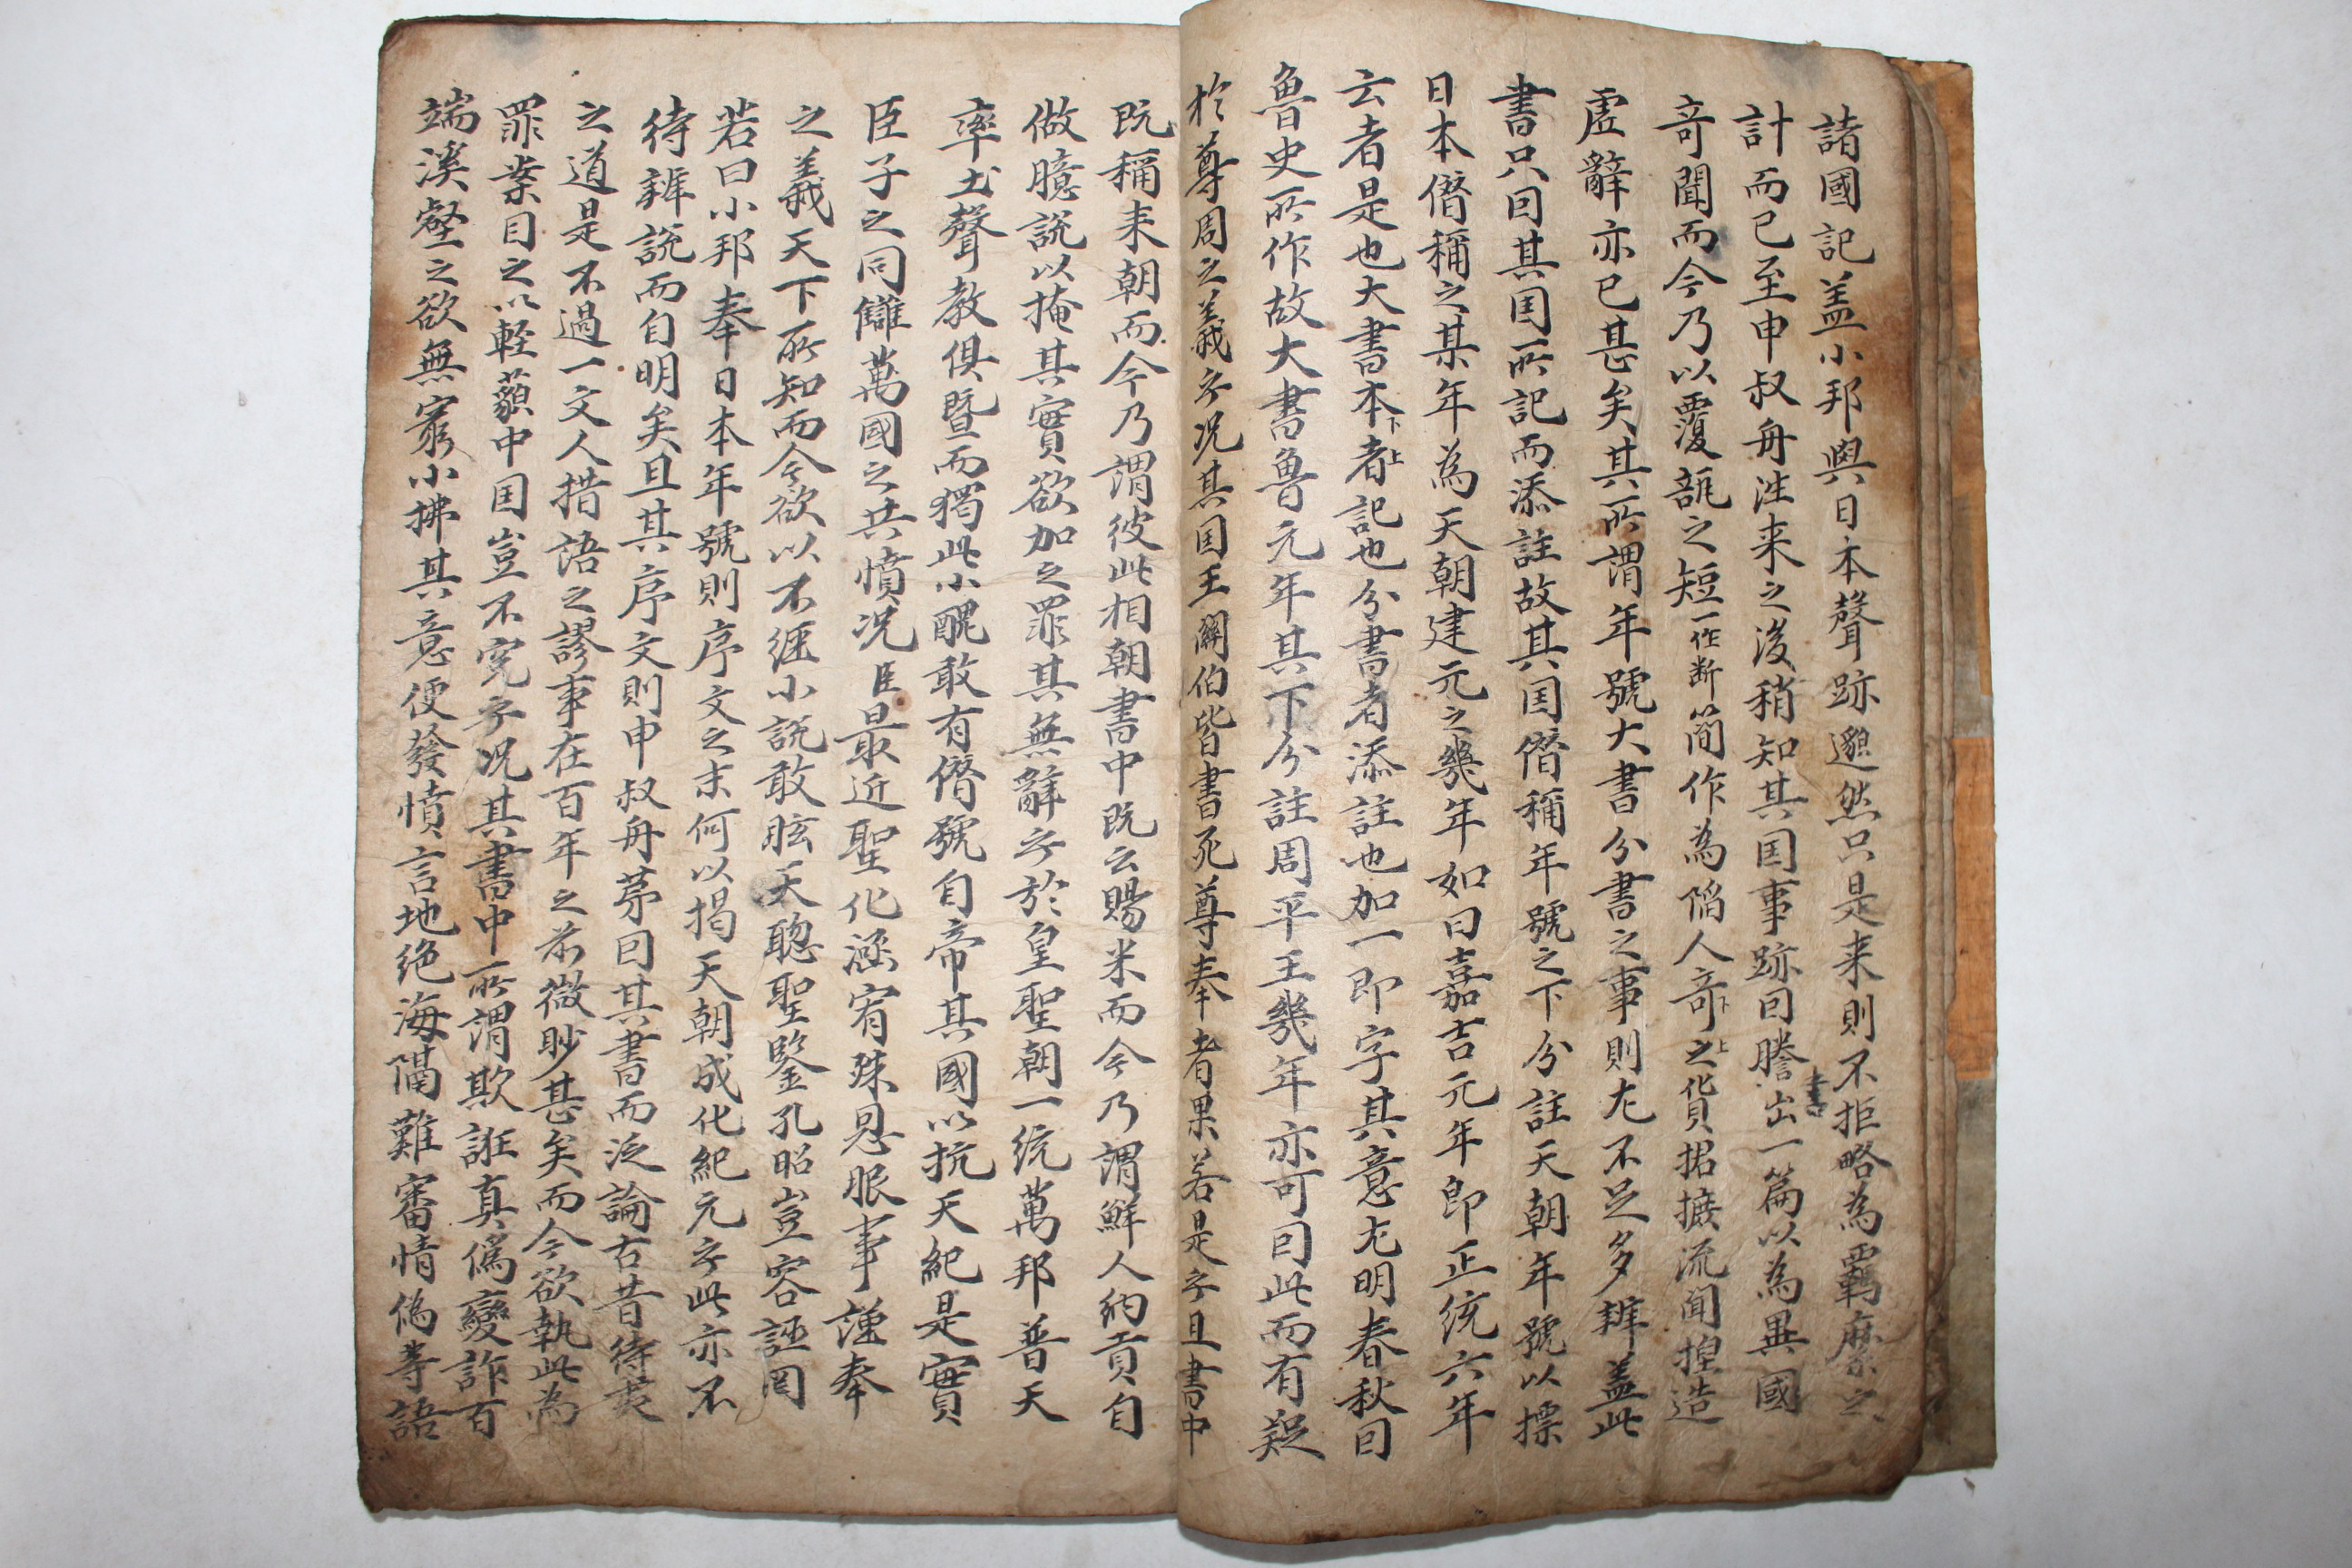 諸國記盖小邦與日本聲跡邈然只是来則不拒略為羈縻之
計而已至申叔舟徃来之後稍知其国事跡因謄出一篇以為異國
書
奇聞而今乃以覆瓿之短一作断簡作為陷人奇下之上貨捃摭流聞揑造
虛辭亦已甚矣其所謂年號大書分書之事則尤不足多辨盖此
書只因其国所記而添註故其国僭稱年號之下分註天朝年號以摽
日本僭稱之某年為天朝建元之幾年如曰嘉吉元年即正統六年
云者是也大書本下者上記也分書者添註也加一即字其意尤明春秋因
魯史所作故大書魯元年其下分註周平王幾年亦可因此而有疑
於尊周之義乎况其国王關伯皆書死尊奉者果若是乎且書中
既稱来朝而今乃謂彼此相朝書中既云賜米而今乃謂鮮人納貢自
做臆說以掩其實欲加之罪其無辭乎於皇聖朝一統萬邦普天
率土聲教俱曁而獨此小醜敢有僭號自帝其國以抗天紀是實
臣子之同讎萬國之共憤况臣最近聖化涵宥殊恩服事謹奉
之義天下所知而今欲以不經小說敢眩天聰聖鑒孔昭豈容誣罔
若曰小邦奉日本年號則序文之末何以揭天朝成化紀元乎此亦不
待辨說而自明矣且其序文則申叔舟茅因其書而泛論古昔待夷
之道是不過一文人措語之謬事在百年之前微眇甚矣而今欲執此為
罪案目之以輕藐中国豈不寃乎况其書中所謂欺誑真僞變詐百
端溪壑之欲無窮小拂其意便發憤言地絶海隔難審情僞等語